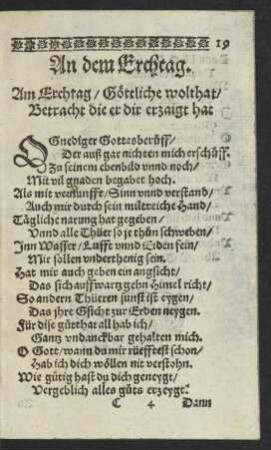 19
An dem Erchtag.
Am Erchtag / Göttliche wolthat /
Betracht die er dir erzaigt hat
O Gnediger Gottes berüff /
Der auß gar nichten mich erschüff.
Zu seinem ebenbild vnnd noch /
Mit vil gnaden begabet hoch.
Als mit vernunfft / Sinn vnnd verstand /
Auch mir durch sein miltreiche Hand /
Tägliche narung hat gegeben /
Vnnd alle Thier so je thün schweben /
Inn Wasser / Lufft vnnd Erden fein /
Mir sollen vnderthenig sein.
Hat mir auch geben ein angsicht /
Das sich auffwartz gehn Himel richt /
So andern Thieren sunst ist eygen /
Das jhre Gsicht zur Erden neygen.
Für dise gütthat all hab ich /
Gantz vndanckbar gehalten mich.
O Gott / wann du mir rüefftest schon /
Hab ich dich wöllen nit verstohn.
Wie gütig hast du dich geneygt /
Vergeblich alles güts erzeygt.
C 4 Dann